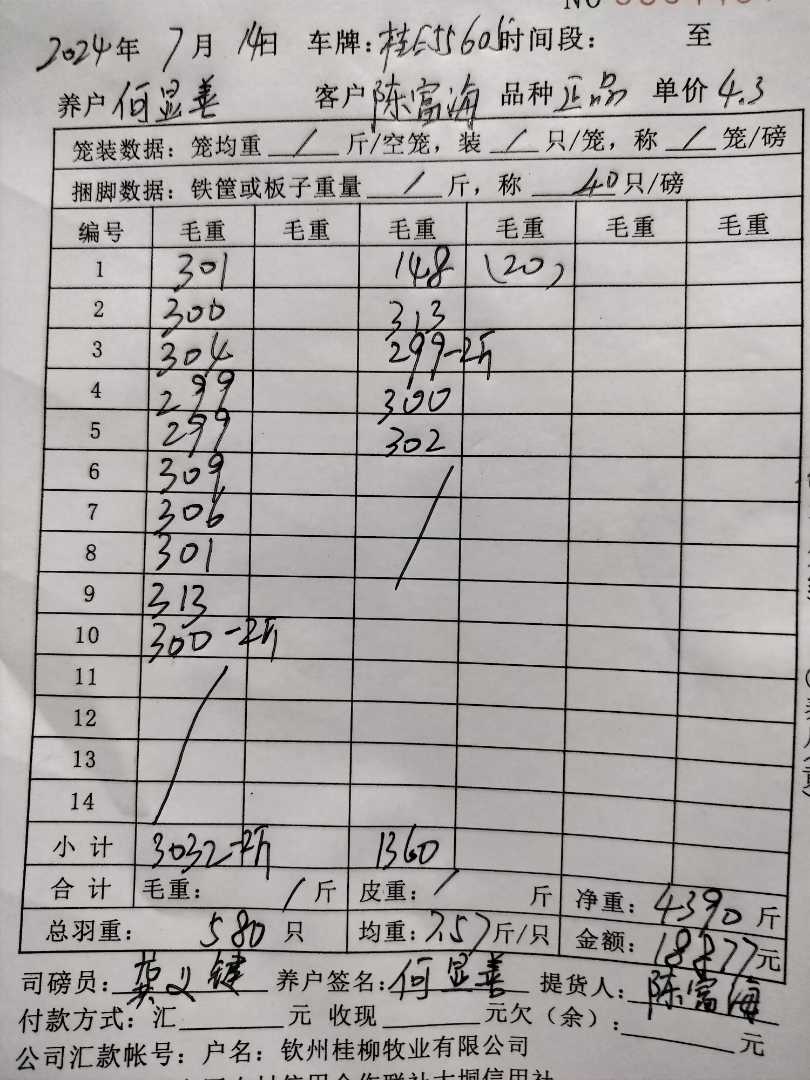 NO
2024年 7月 14日 车牌:桂E55605时间段: 至
养户 何显善 客户 陈富海 品种 正品 单价 4.3
笼装数据: 笼均重 / 斤/空笼, 装 / 只/笼, 称 / 笼/磅
捆脚数据: 铁筐或板子重量 / 斤, 称 40只/磅
编号 毛重 毛重 毛重 毛重 毛重 毛重
1 301 148 (20)
2 300 313
3 304 299-2斤
4 299 300
5 299 302
6 309
7 306
8 301
9 313
10 300-2斤
11
12
13
14
小计 3032-2斤 1360
合计 毛重: / 斤 皮重: / 斤 净重: 4390斤
总羽重: 580 只 均重: 7.57斤/只 金额: 18877元
司磅员: 龚义键 养户签名: 何显善 提货人: 陈富海
付款方式: 汇 元 收现 元欠(余): 元
公司汇款帐号: 户名: 钦州桂柳牧业有限公司